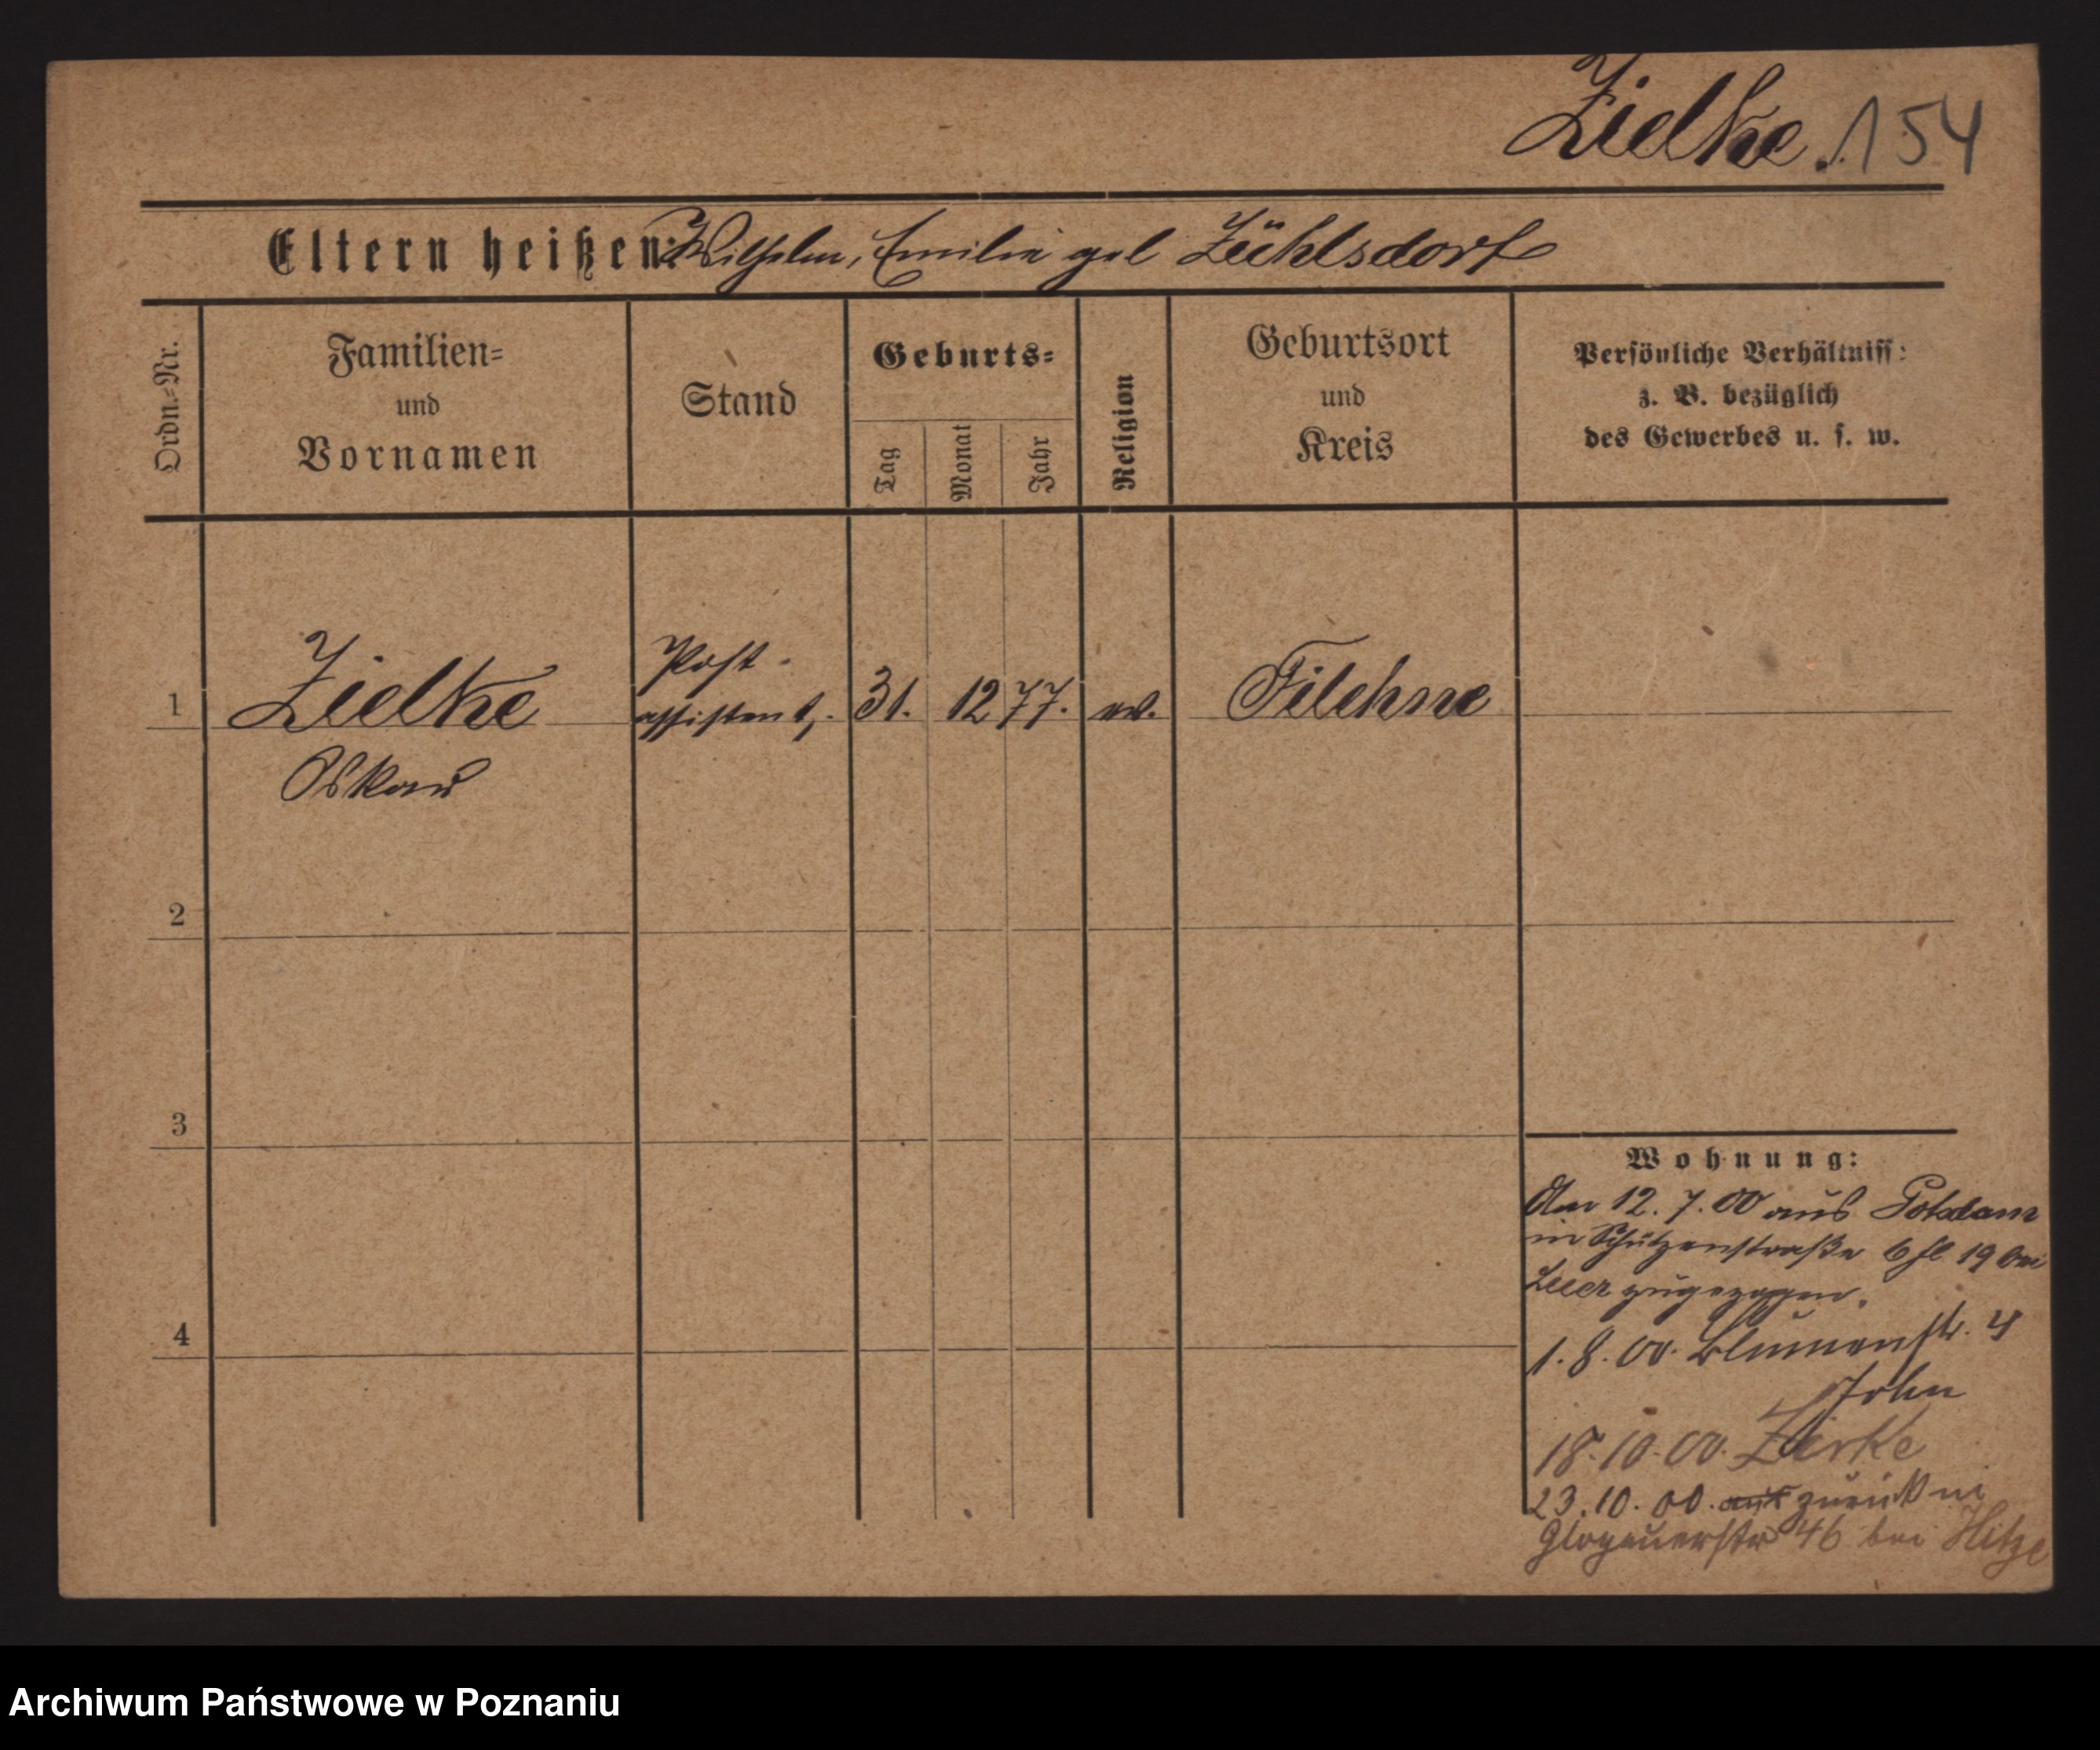 Zielke. 154
Eltern heißen: Wilhelm, Emilie geb Zühlsdorf
Ordn.=Nr.
Familien=
und
Vornamen
Stand
Geburts=
Tag
Monat
Jahr
Religion
Geburtsort
und
Kreis
Persönliche Verhältniss:
z. B. bezüglich
des Gewerbes u. s. w.
1 Zielke Post-
assistent, 31. 12 77. ev. Filehne
Oskar
2
3
4
Wohnung:
Am 12. 7. 00 aus Potsdam
in Schützenstraße 6 19 bei
zugezogen.
1. 8. 00. Blumenstr. 4
John
18. 10. 00. Zirke
23. 10. 00. aus zurück in
Glogauerstr 46 bei Hitze
Archiwum Państwowe w Poznaniu